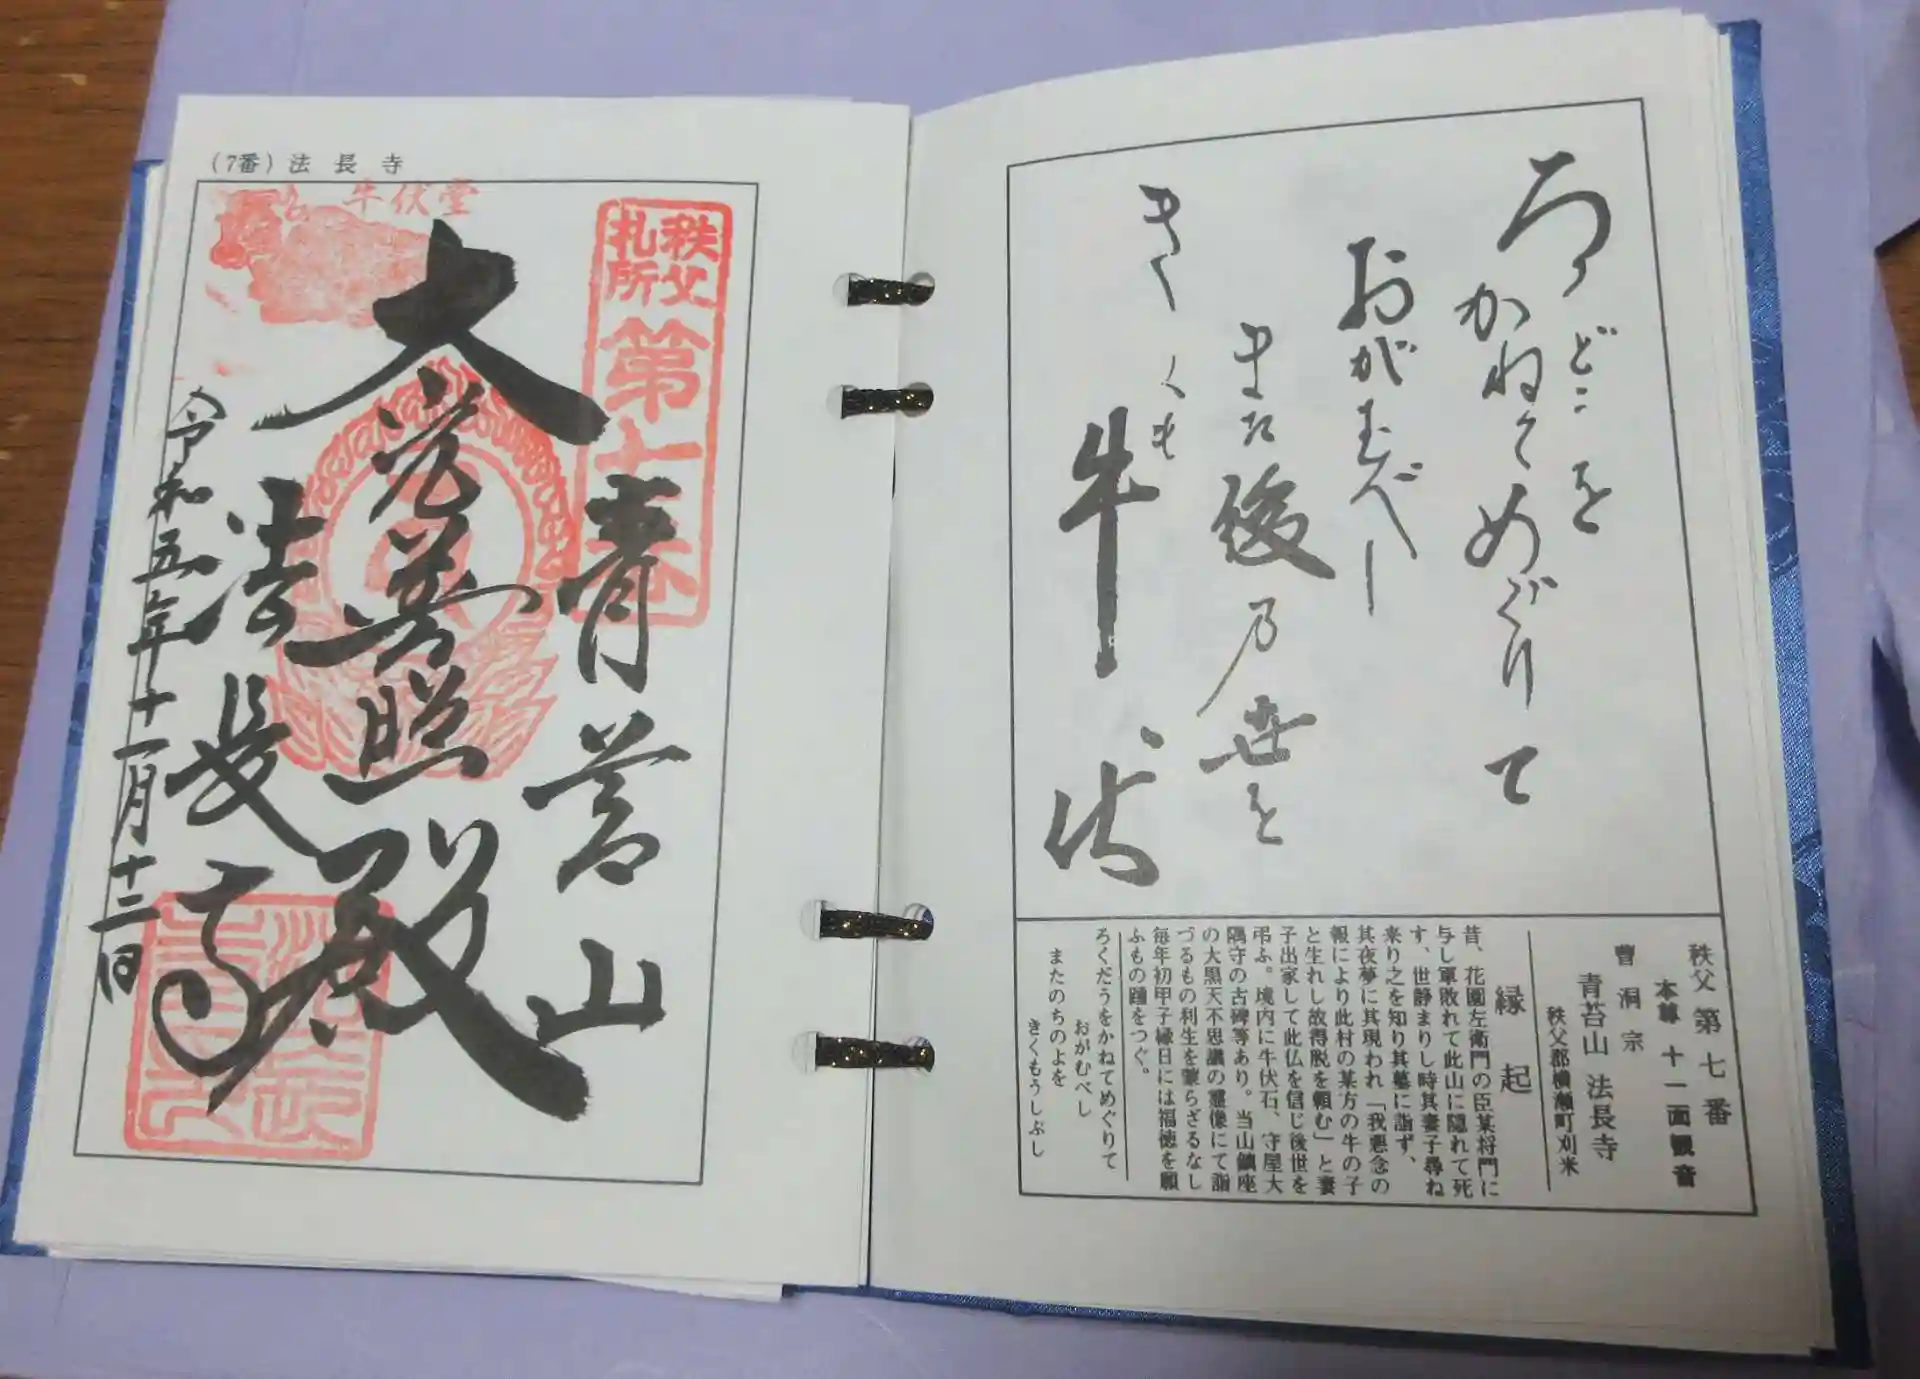 ろくどうを
かねてめぐりて
おがむべし
また後乃世を
きくも
牛伏
秩父 第七番
本尊 十一面観音
曹洞宗
青苔山 法長寺
秩父郡横瀬町刈米
縁起
昔、花園左衛門の臣某将門に
与し軍敗れて此山に隠れて死
す、世静まりし時其妻子尋ね
来り之を知り其墓に詣ず、
其夜夢に其現われ「我悪念の
報により此村の某方の牛の子
と生れし故得脱を頼む」と妻
子出家して此仏を信じ後世を
弔ふ。境内に牛伏石、守屋大
隅守の古碑等あり。当山鎮座
の大黒天不思議の霊像にて詣
づるもの利生を蒙らざるなし
毎年初甲子縁日には福徳を願
ふもの踵をつぐ。
ろくだうをかねてめぐりて
おがむべし
またのちのよを
きくもうしぶし
(7番) 法長寺
牛伏堂
秩父札所
第七番
青苔山
大光普照殿
法長寺
令和五年十一月十三日